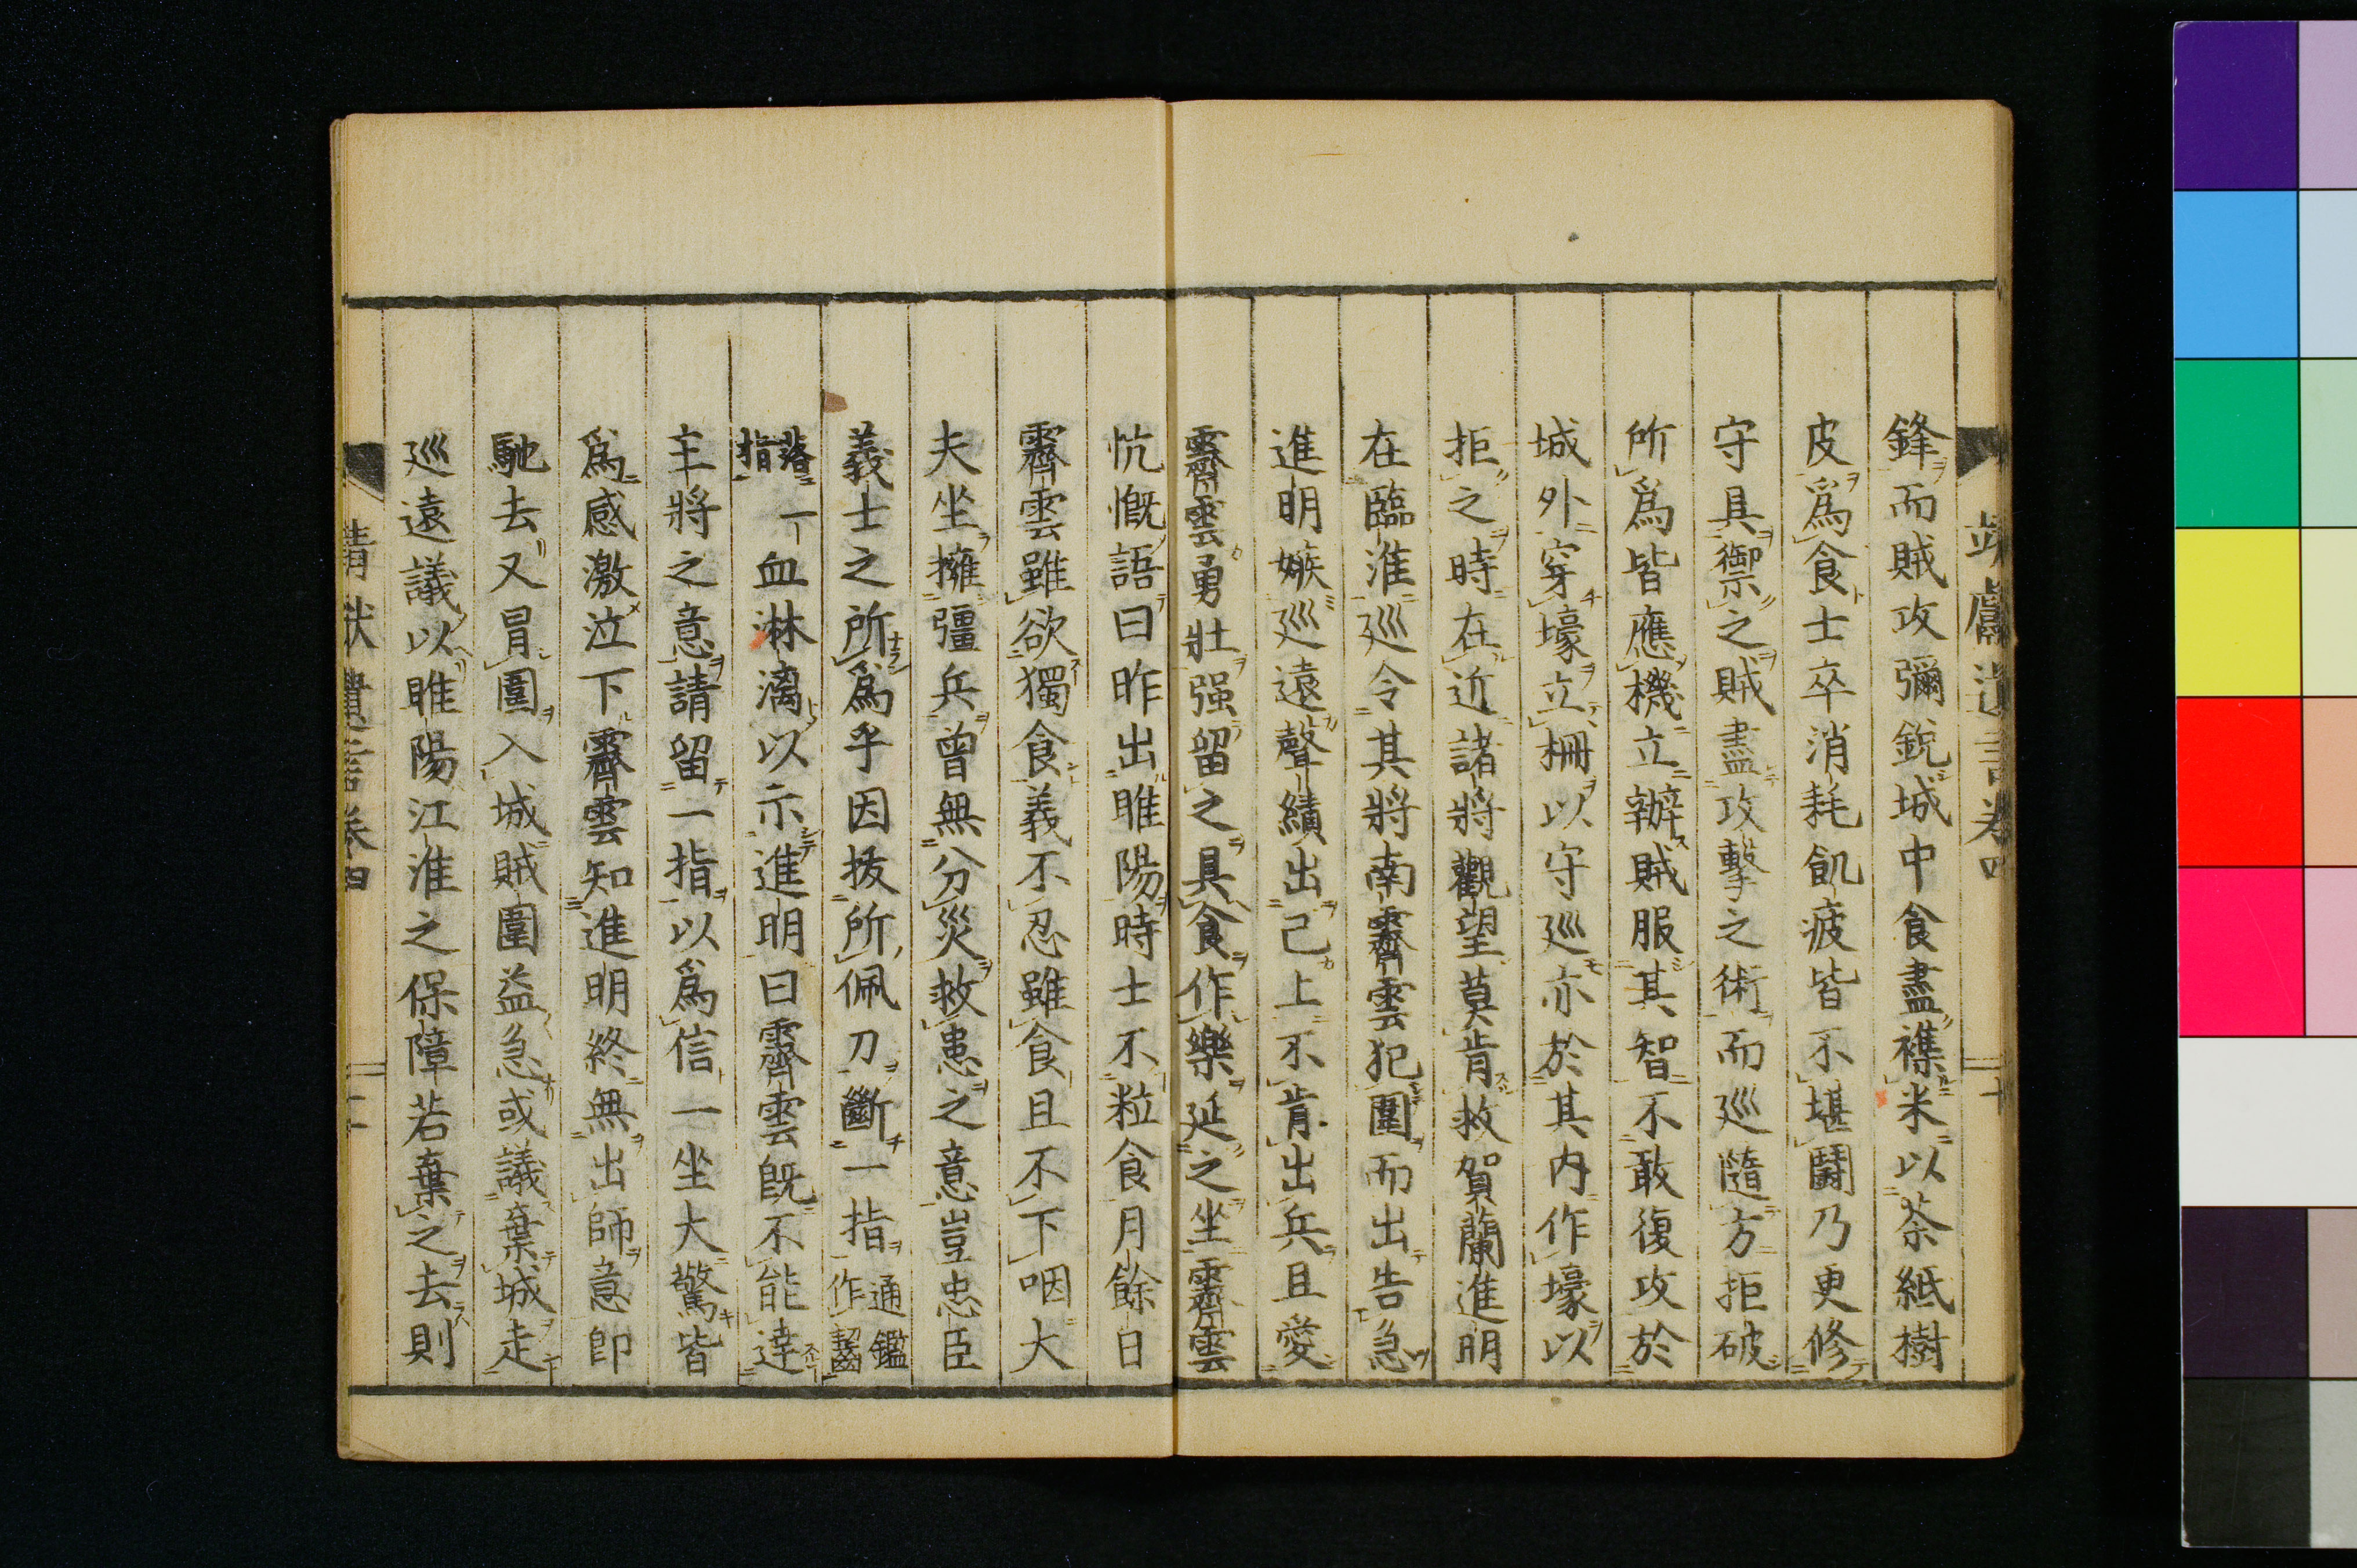 鋒而賊攻彌銳城中食盡襍米以茶紙樹
皮爲食士卒消耗飢疲皆不堪鬪乃更修
守具禦之賊盡攻擊之術而巡隨方拒破
所爲皆應機立辦賊服其智不敢復攻於
城外穿壕立柵以守巡亦於其内作壕以
拒之時在近諸將觀望莫肯救賀蘭進明
在臨淮巡令其將南霽雲犯圍而出告急
進明嫉巡遠聲績出己上不肯出兵且愛
霽雲勇壯强留之具食作樂延之坐霽雲
忼慨語曰昨出睢陽時士不粒食月餘日
霽雲雖欲獨食義不忍雖食且不下咽大
夫坐擁彊兵曾無分災救患之意豈忠臣
義士之所爲乎因拔所佩刀斷一指通鑑作齧
落指一血淋漓以示進明曰霽雲旣不能達
主將之意請留一指以爲信一坐大驚皆
爲感激泣下霽雲知進明終無出師意卽
馳去又冒圍入城賊圍益急或議棄城走
巡遠議以睢陽江淮之保障若棄之去則
靖献遺言卷四